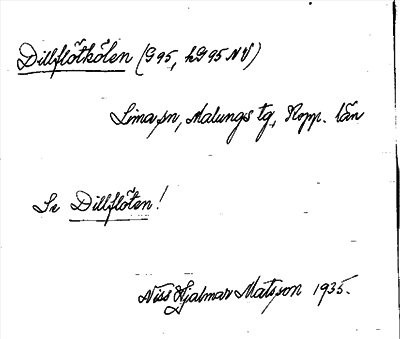 Dillflötkölen (G95, hG95NV)
Lima sn, Malungs tg, Kopp. län
Se Dillflöten!
Niss Hjalmar Matsson 1935.